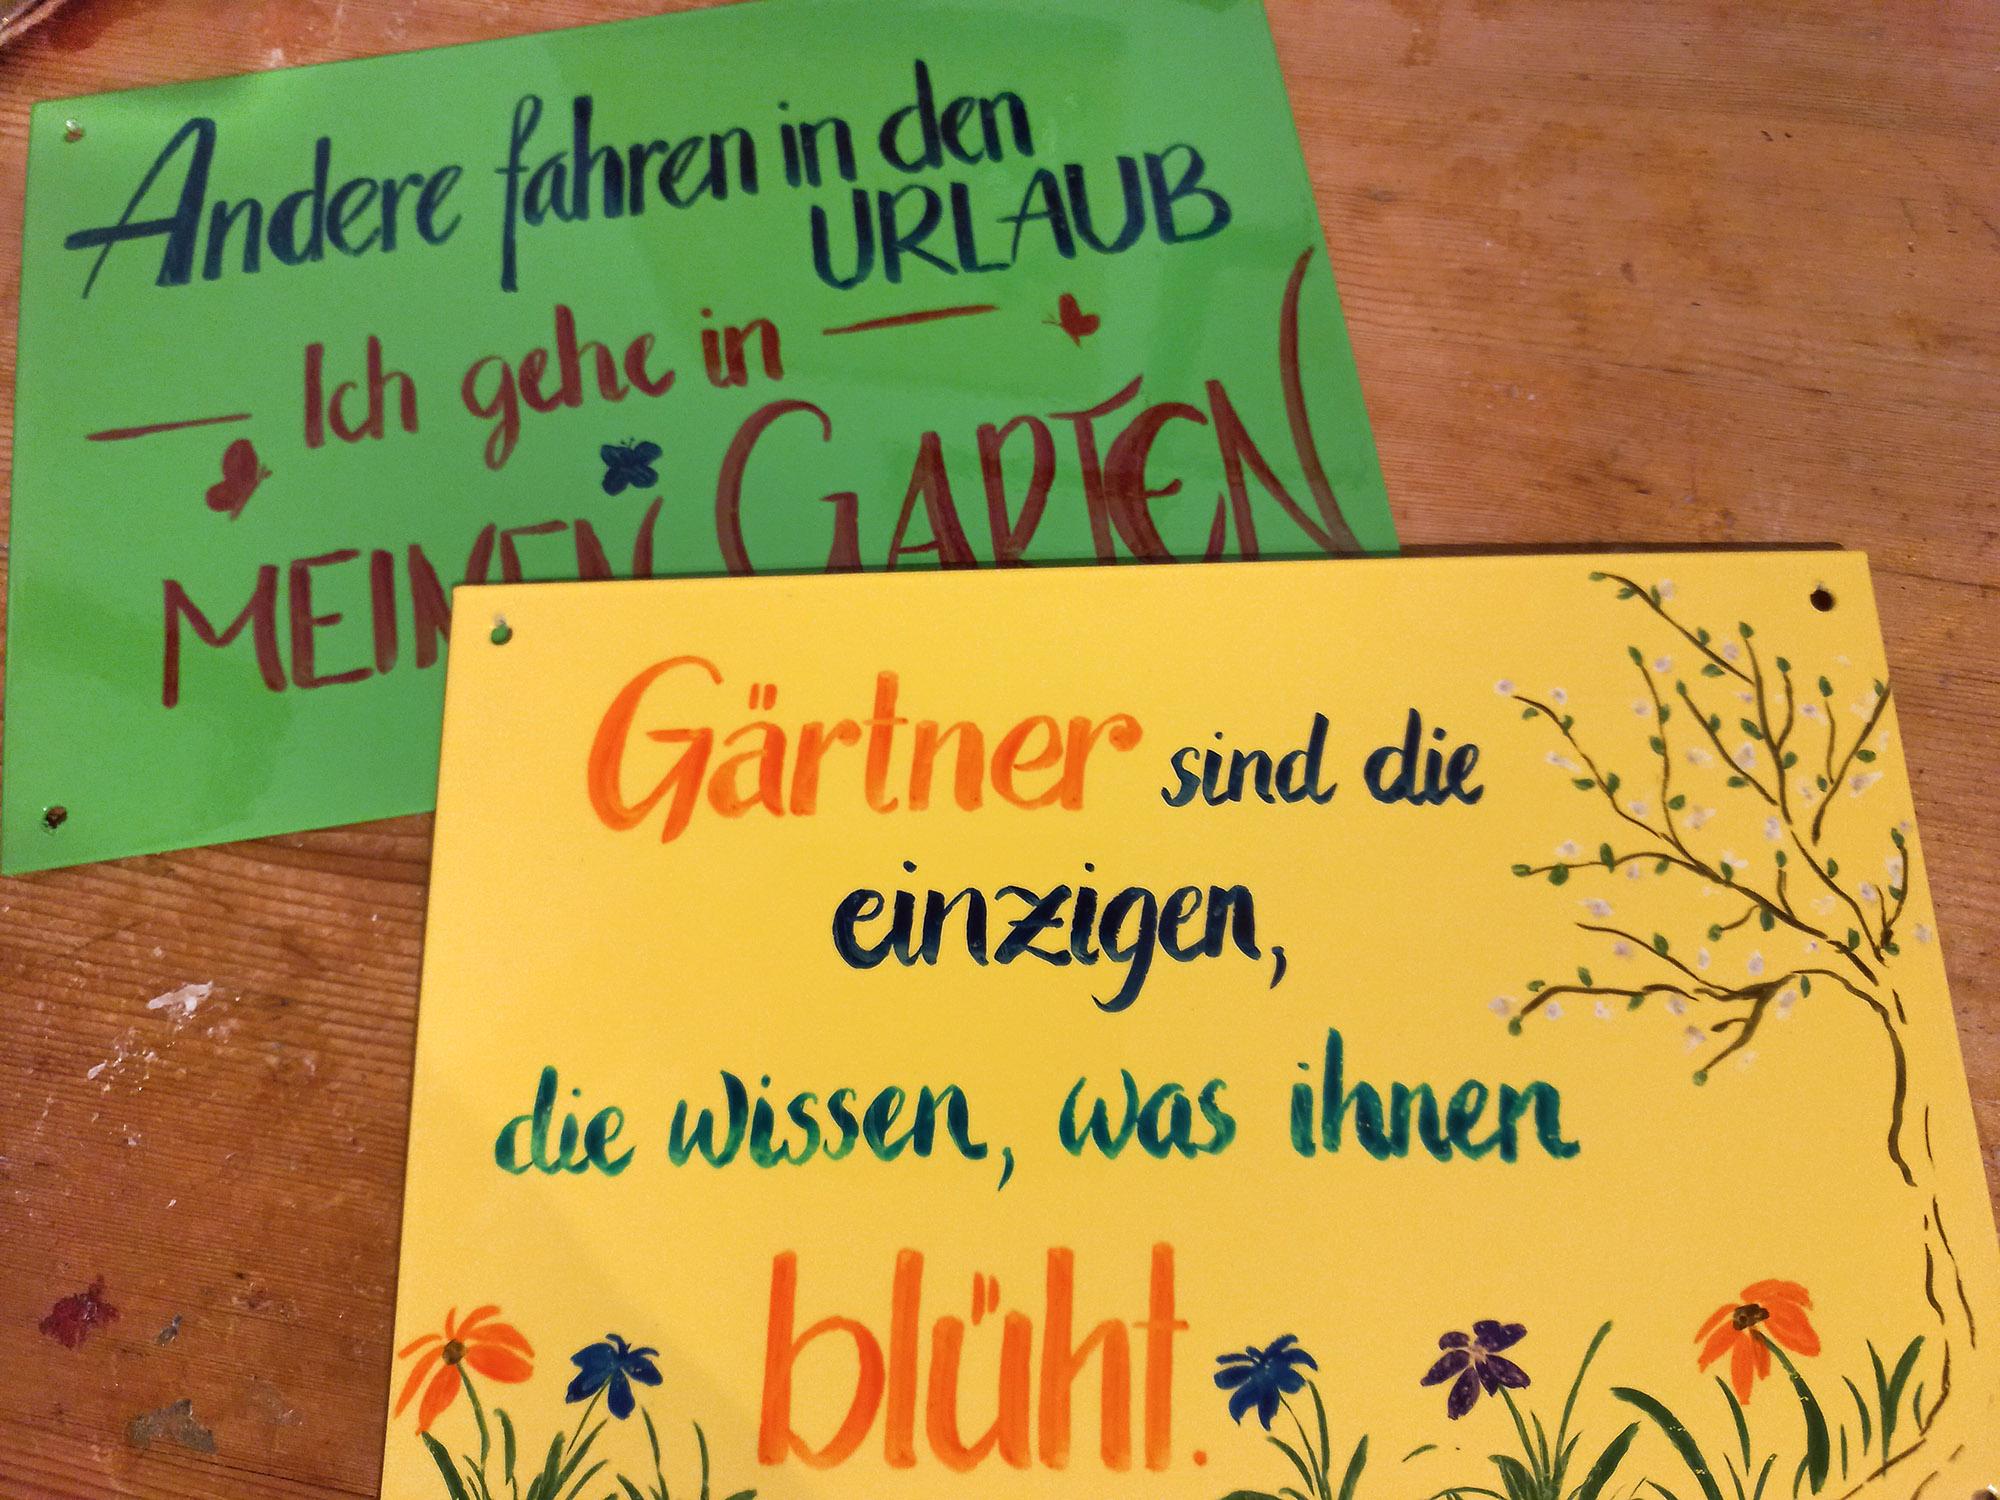 Andere fahren in den
URLAUB
Ich gehe in
MEINEN GARTEN
Gärtner sind die
einzigen,
die wissen, was ihnen
blüht.